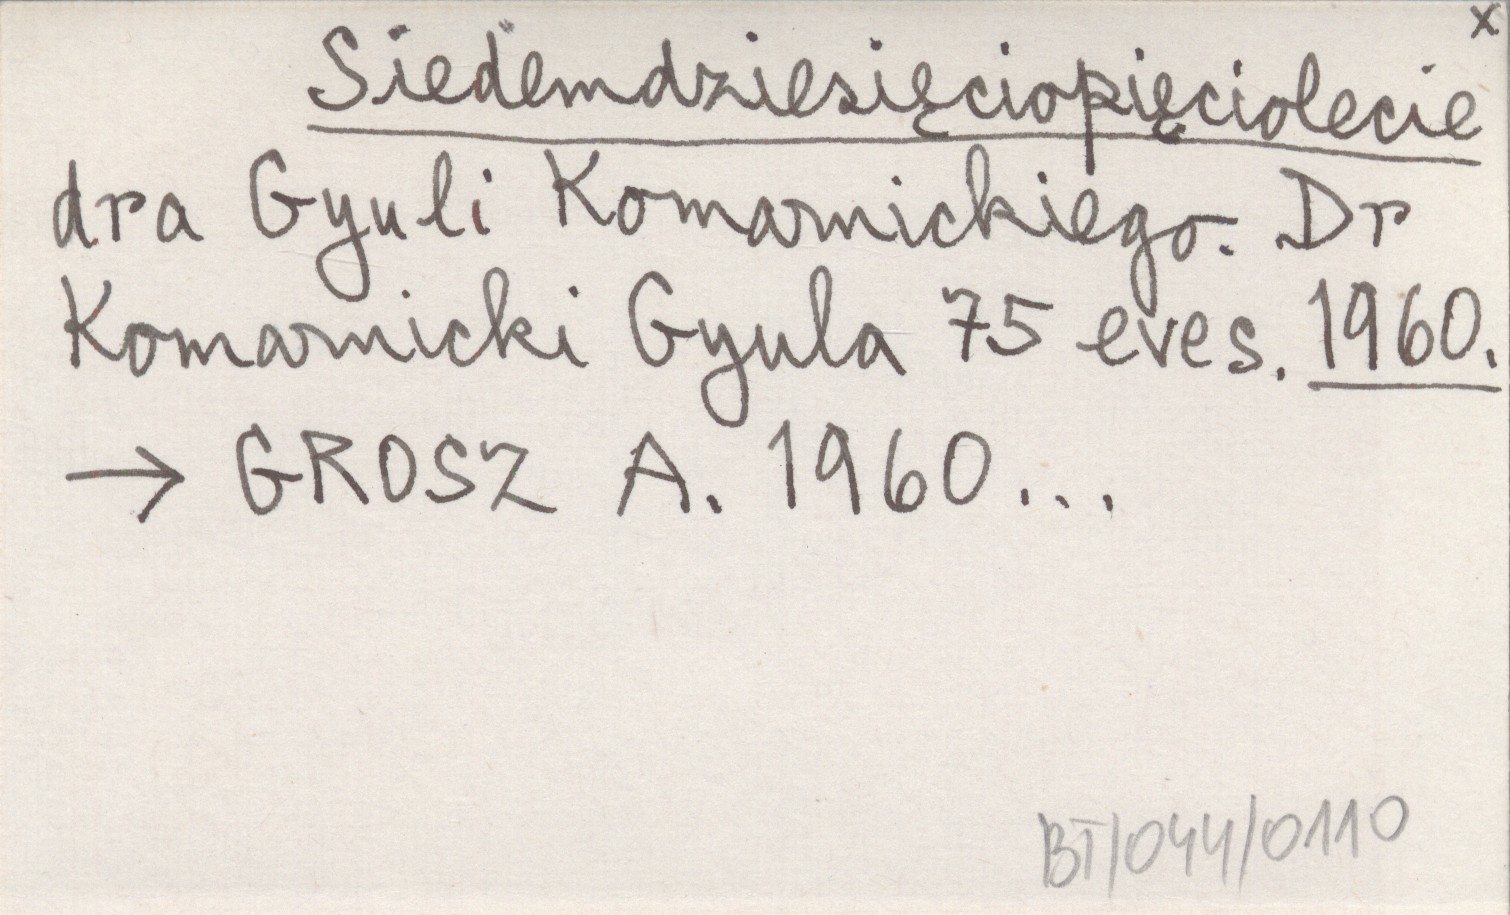 x
Siedemdziesięciopięciolecie
dra Gyuli Komarnickiego. Dr
Komarnicki Gyula 75 eves. 1960.
→ GROSZ A. 1960...
BT/044/0110